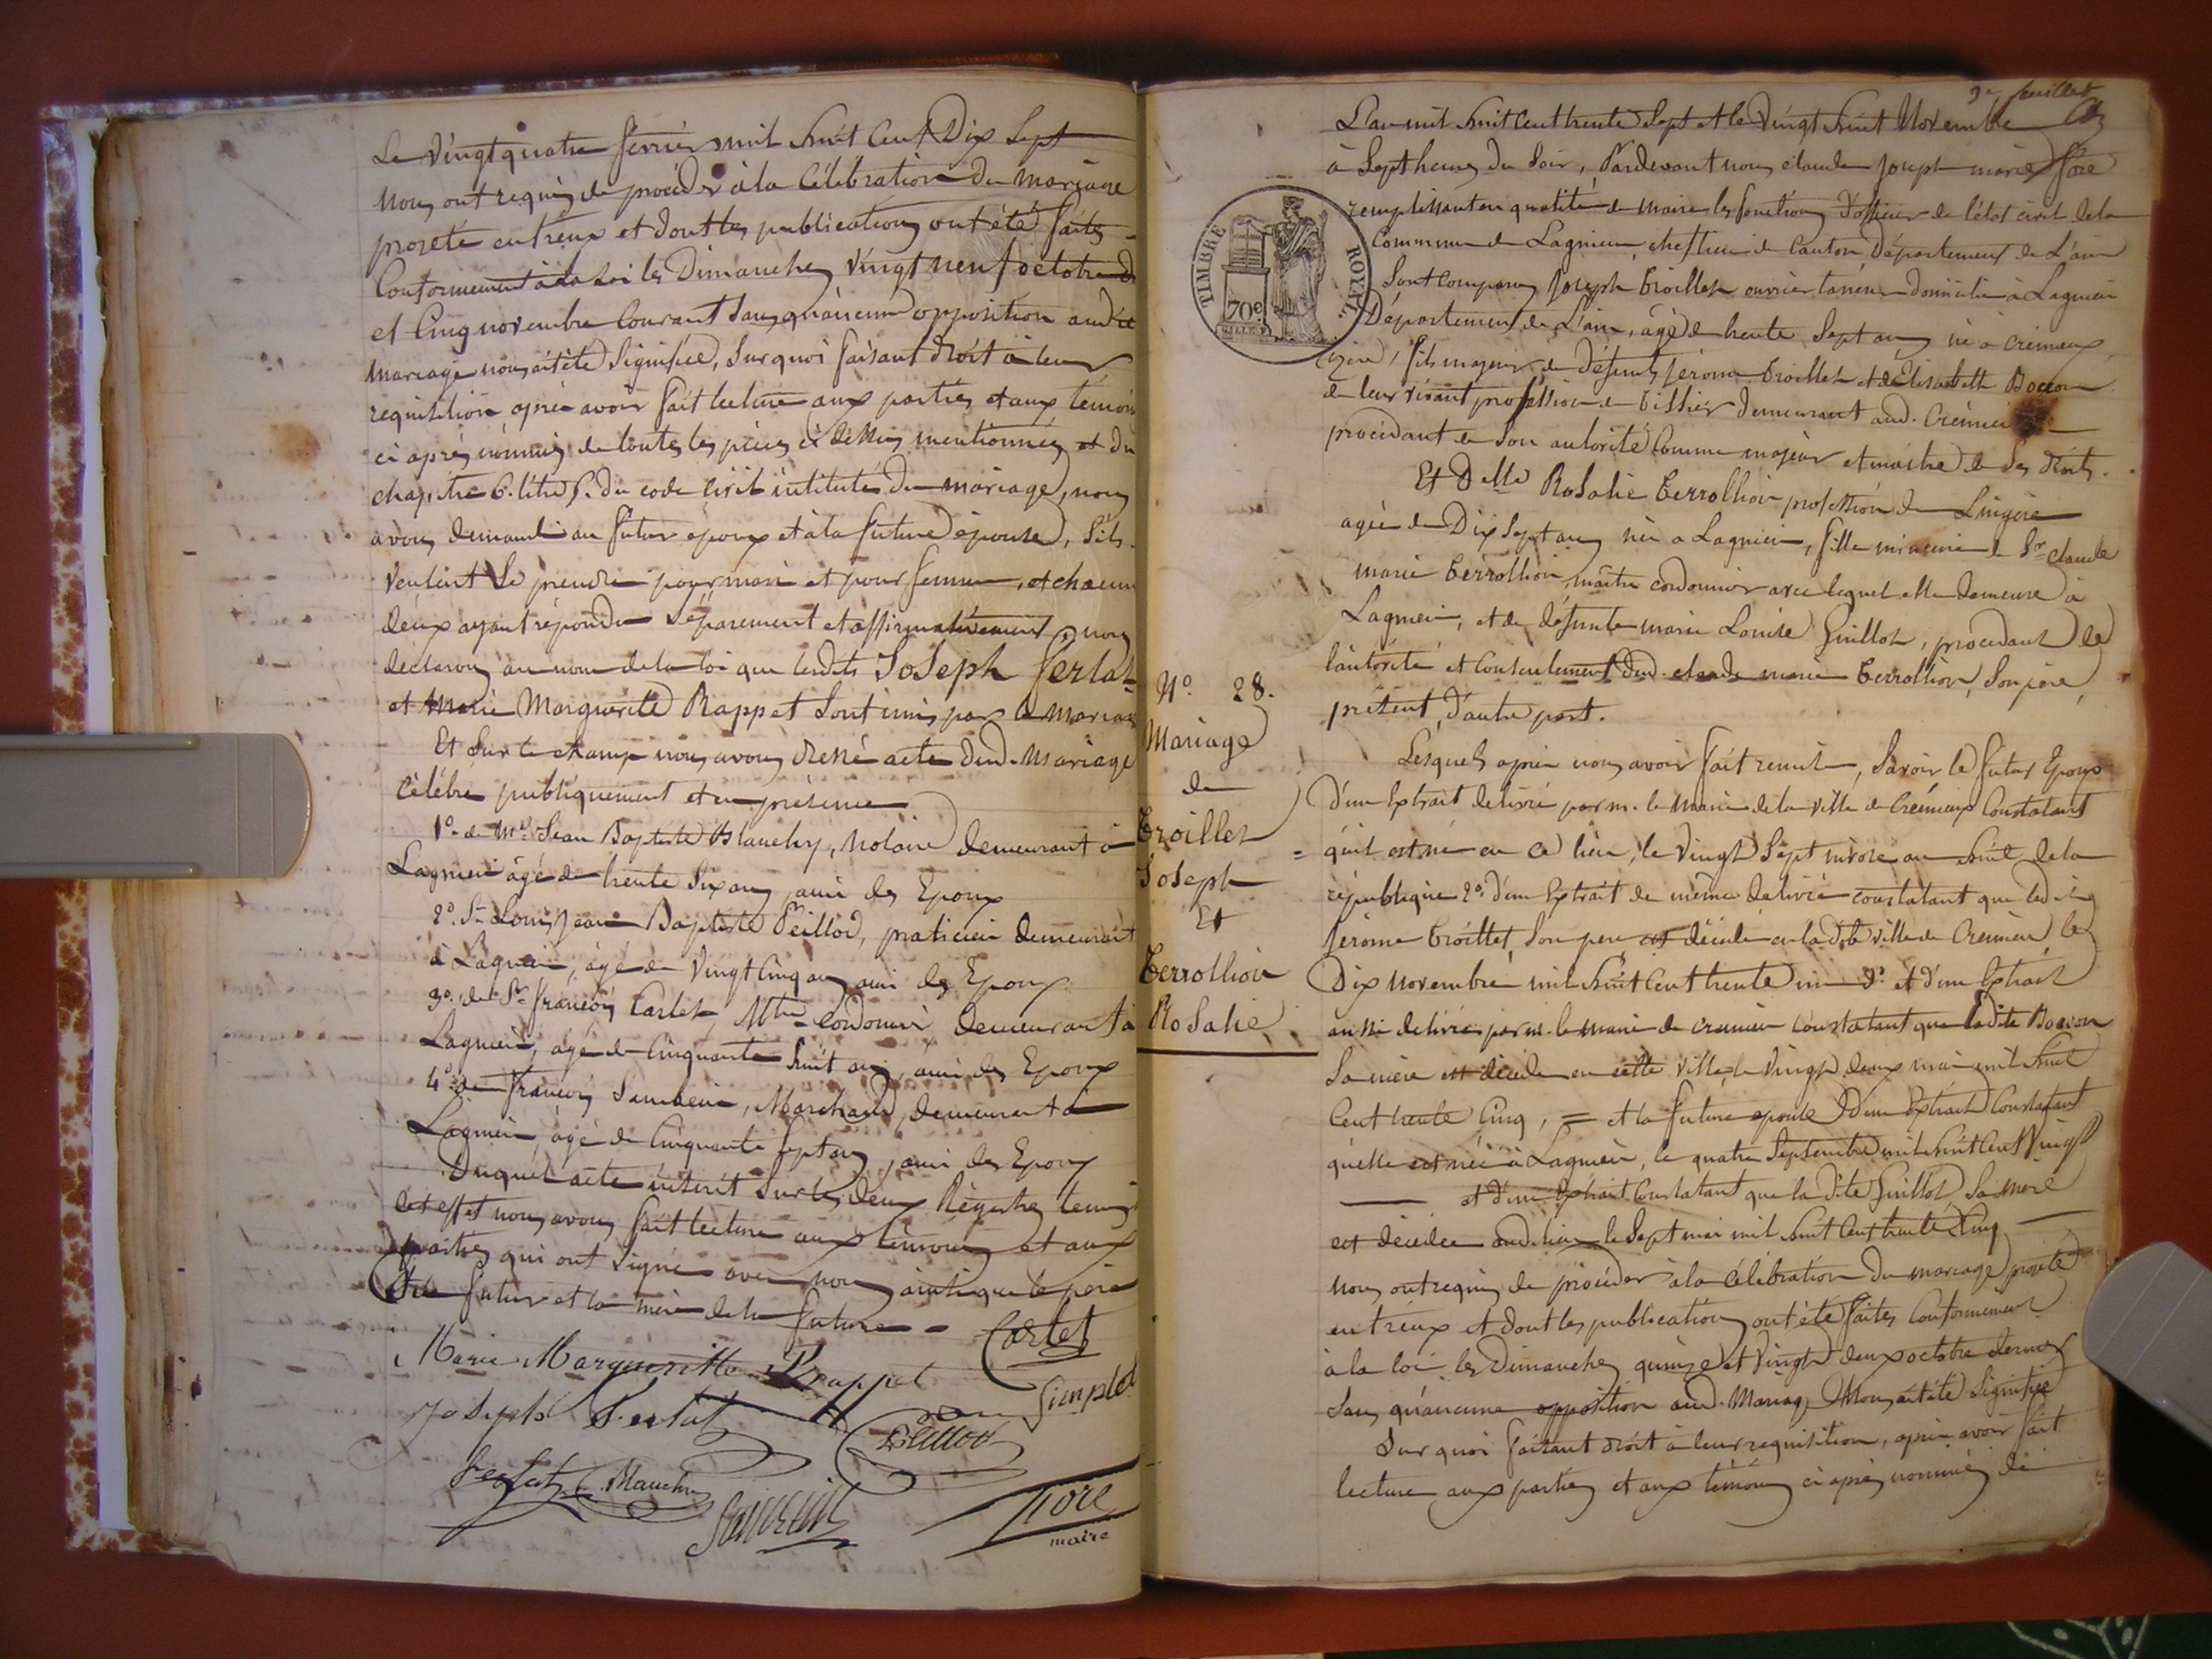 Le Vingt quatre fevrier mil huit Cent Dix Sept
nous ont requis de proceder à la Célébration du mariage
projeté entr'eux et dont les publications ont été faites
Conformement à la Loi les Dimanches Vingt neuf octobre
et Cinq novembre Courant Sans qu'aucune opposition audit
mariage nous ait été Signifiée, Sur quoi faisant droit à leur
requisition après avoir fait lecture aux parties et aux temoins
ci après nommés de toutes les pièces ci dessus mentionnées et du
chapitre 6. titre 5. du code Civil intitulé du mariage, nous
avons demandé au futur epoux et à la future épouse, S'ils
Veulent Se prendre pour mari et pour femme, et chacun
d'eux ayant répondu Séparement et affirmativement, nous
declarons au nom de la loi que lesdits Joseph Ferlat
et Marie Marguerite Rappet Sont unis par le Mariage
Et Sur le champ nous avons dressé acte dud. Mariage
Célébré publiquement et en présence
1º. de Me. Jean Baptiste Blanchy, Notaire demeurant à
Lagnieu âgé de trente Six ans, ami des Epoux
2º. Sr. Louis Jean Baptiste Peillod, praticien demeurant
à Lagnieu, âgé de Vingt Cinq ans ami des Epoux
3º. de Sr. françois Carlet Mtre cordonnier demeurant à
Lagnieu, âgé de Cinquante huit ans, ami des Epoux
4º. de François Marchand, demeurant à
Lagnieu, âgé de Cinquante Sept ans, ami des Epoux
Duquel acte inscrit Sur les deux Régistres tenus
cet effet nous avons fait lecture aux temoins et aux
parties qui ont Signé avec nous ainsi que le père
du futur et la mère de la future
Carlet
Marie Margueritte Rappet
Simplet
Joseph Ferlat
Peillod
Ferlat Blanchy
Fore
maire
Nº. 28.
Mariage
de
Troillet
Joseph
Et
Terrollion
Rosalie
9e feuillet
L'an mil huit Cent trente Sept et le Vingt huit Novembre
à Sept heures du Soir, Pardevant nous claude joseph marie fore
remplissant en qualité de maire les fonctions d'officier de l'état civil de la
Commune de Lagnieu, chef lieu de Canton Département de L'ain
TIMBRE ROYAL
70c
Sont Comparus Joseph Troillet ouvrier tanneur domicilié à Lagnieu
Département de L'ain, âgé de trente Sept ans né à crémieux
(isère) fils majeur de défunts Jérome Troillet et d'Elisabeth Boccon
de leur vivant profession de tissier demeurant aud. Crémieu
procédant de Son autorité Comme majeur et maître de Ses droits.
Et Delle Rosalie Terrollion profession de Lingère
agée de Dix Sept ans née a Lagnieu, fille mineure de Sr. claude
marie Terrollion, maître cordonnier avec lequel elle demeure à
Lagnieu, et de défunte marie Louise Guillot, procedant de
l'autorité et Consentement dud. claude marie Terrollion, Son père,
présent, d'autre part.
Lesquels après nous avoir fait remise, Savoir le futur Epoux
d'un Extrait délivré par m. le Maire de la Ville de Crémieux Constatant
qu'il est né en ce lieu, le Vingt Sept nivose an huit de la
république 2º. d'un Extrait de même délivré constatant que ledit
Jérome Troillet, Son père est décédé en la dite ville de Crémieu, le
Dix Novembre mil huit Cent trente un 3º. et d'un Extrait
aussi delivré par m. le maire de cremieu constatant que ladite Boccon
Sa mère est décédée en cette Ville le Vingt deux mai mil huit
Cent trente Cinq, = et la future epouse d'un Extrait Constatant
qu'elle est née à Lagnieu, le quatre Septembre mil huit Cent Vingt
et d'un Extrait Constatant que la dite Guillot, Sa mère
est décédée aud. lieu le Sept mai mil huit Cent trente Cinq
nous ont requis de procéder à la Célébration du mariage projeté
entr'eux et dont les publications ont été faites Conformement
à la loi les Dimanches quinze et Vingt deux octobre dernier
Sans qu'aucune opposition aud. Mariage Nous ait été Signifiée
Sur quoi faisant droit à leur requisition, après avoir fait
lecture aux parties et aux témoins ci après nommés de